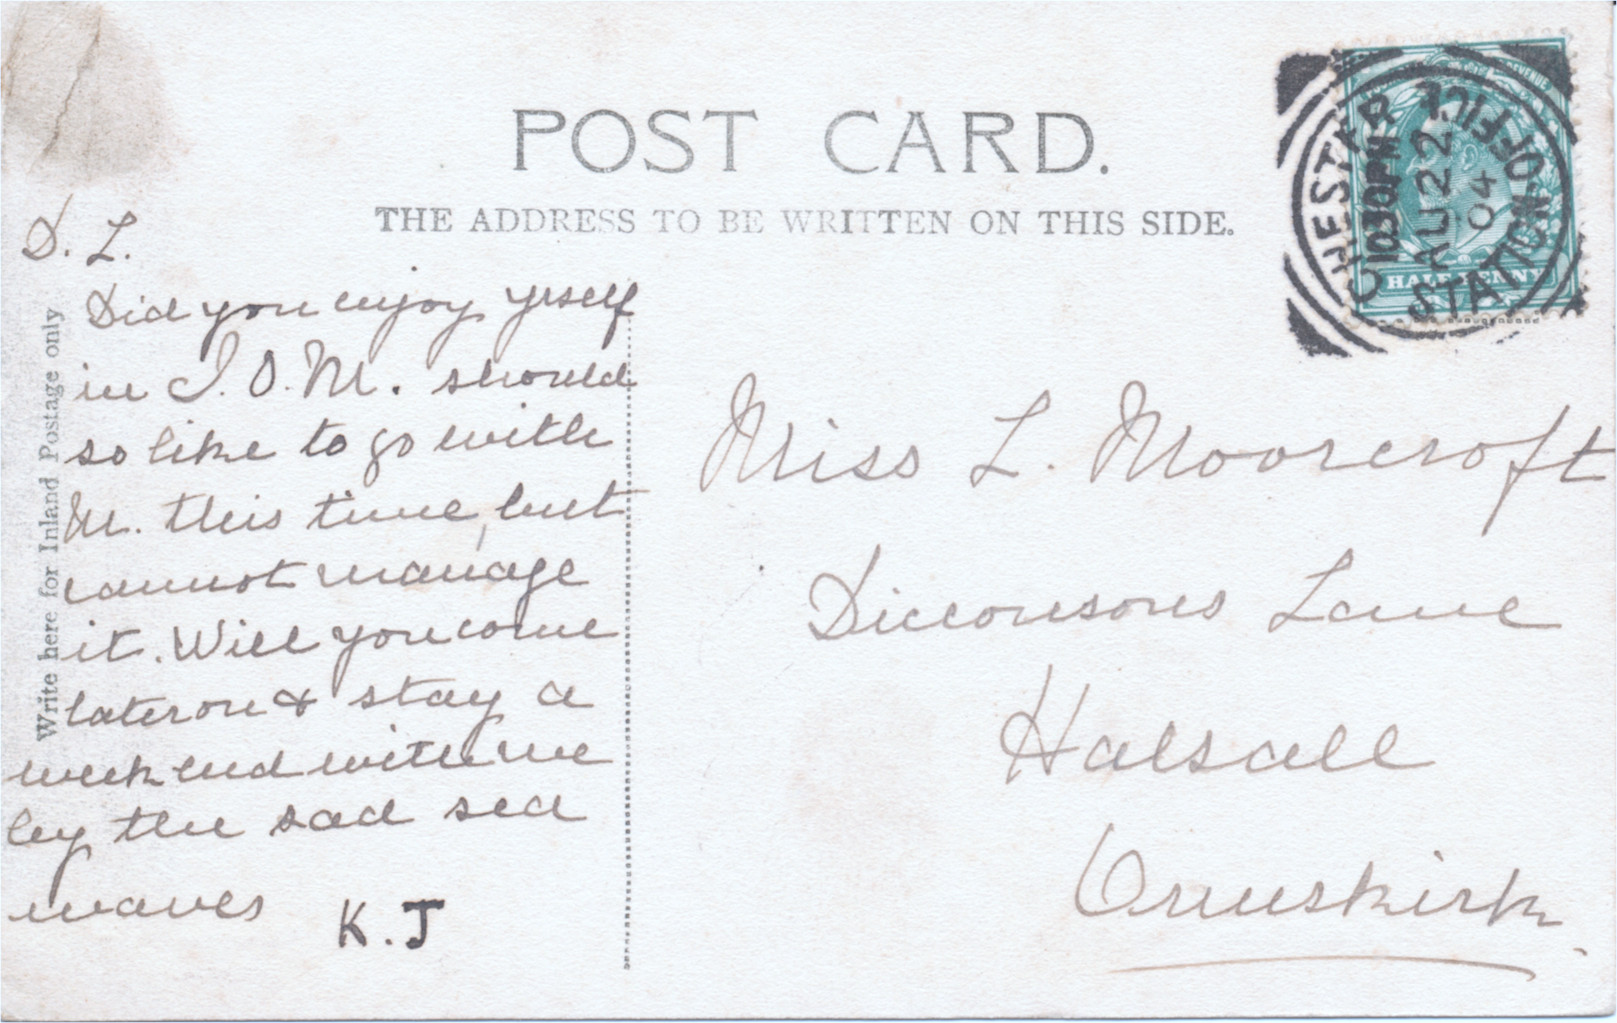 POST CARD.
THE ADDRESS TO BE WRITTEN ON THIS SIDE.
CHESTER STATION OFFICE
10.30PM
AU 22
04
HALF PENNY
Write here for Inland Postage only
D. L.
Did you enjoy yrself
in I.O.M. should
so like to go with
M. this time, but
cannot manage
it. Will you come
later on & stay a
week end with me
by the sad sea
waves
K.J
Miss L. Moorcroft
Dicconsons Lane
Halsall
Ormskirk